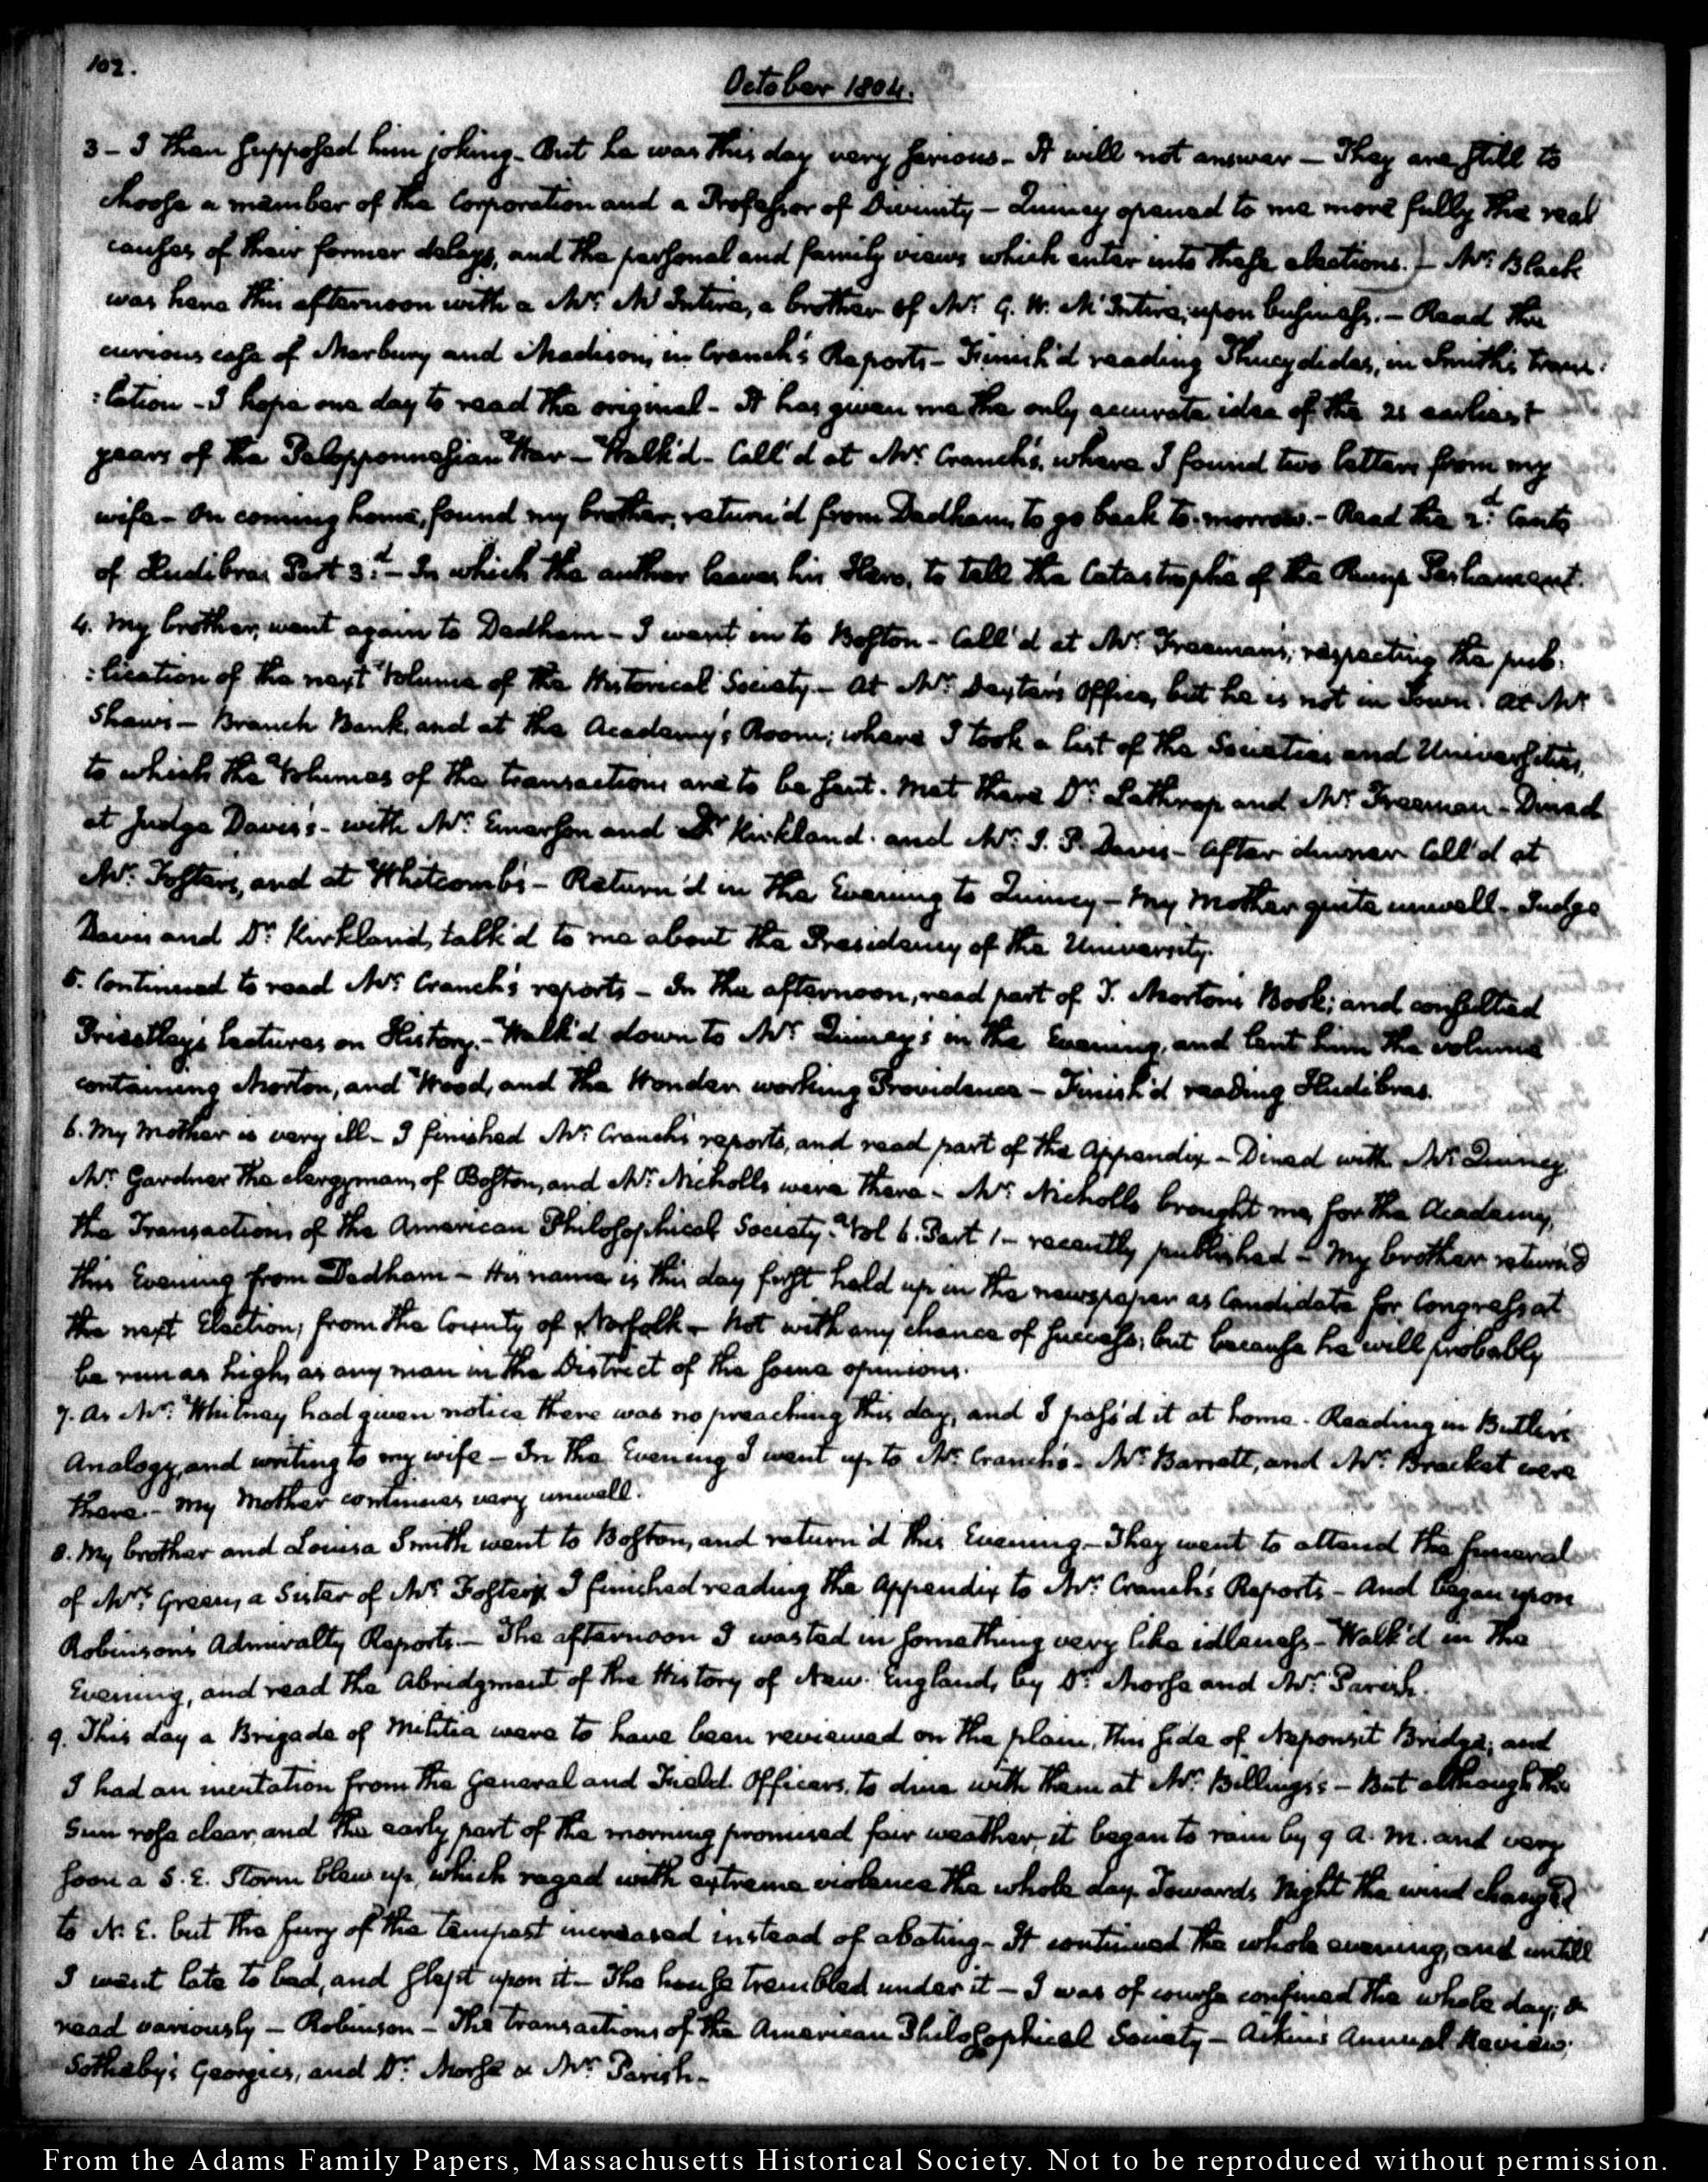 102.
October 1804.
3 - I then supposed him joking - But he was this day very serious - It will not answer - They are still to
choose a member of the Corporation and a Professor of Divinity - Quincy opened to me more fully the real
causes of their former delays, and the personal and family views which enter into these elections.) - Mr. Black
was here this afternoon with a Mr. McIntire, a brother of Mr. G. W. McIntire, upon business. - Read the
curious case of Marbury and Madison, in Cranch's Reports - Finish'd reading Thucydides, in Smith's trans-
:lation - I hope one day to read the original - It has given me the only accurate idea of the 21 earliest
years of the Peloponnesian War - Walk'd - Call'd at Mr. Cranch's, where I found two letters from my
wife - On coming home, found my brother, return'd from Dedham, to go back to-morrow. - Read the 2d. Canto
of Hudibras Part 3d. - In which the author leaves his Hero, to tell the Catastrophe of the Rump Parliament.
4. My brother, went again to Dedham - I went in to Boston - Call'd at Mr. Freeman's, respecting the pub-
:lication of the next Volume of the Historical Society - At Mr. Dexter's Office, but he is not in Town. At Mr.
Shaw's - Branch Bank, and at the Academy's Room; where I took a list of the Societies and Universities,
to which the Volumes of the transactions are to be sent. Met there Dr. Lathrop and Mr. Freeman - Dined
at Judge Davis's - with Mr. Emerson and Dr. Kirkland. and Mr. I. P. Davis - After dinner Call'd at
Mr. Foster's, and at Whitcomb's - Return'd in the Evening to Quincy - My Mother quite unwell - Judge
Davis and Dr. Kirkland, talk'd to me about the Presidency of the University.
5. Continued to read Mr. Cranch's reports - In the afternoon, read part of T. Morton's Book; and consulted
Priestley's lectures on History. - Walk'd down to Mr. Quincy's in the Evening, and lent him the volume
containing Morton, and Wood, and the Wonder working Providence - Finish'd reading Hudibras.
6. My Mother is very ill - I finished Mr. Cranch's reports, and read part of the Appendix - Dined with Mr. Quincy.
Mr. Gardner the clergyman, of Boston, and Mr. Nicholls were there - Mr. Nicholls brought me, for the Academy,
the Transactions of the American Philosophical Society. Vol 6. Part 1 - recently published - My brother return'd
this Evening from Dedham - His name is this day first held up in the newspaper as Candidate for Congress at
the next Election, from the County of Norfolk - Not with any chance of success; but because he will probably
be run as high, as any man in the District of the same opinions.
7. As Mr. Whitney had given notice there was no preaching this day, and I pass'd it at home. Reading in Butler's
Analogy, and writing to my wife - In the Evening I went up to Mr. Cranch's - Mr. Barrett, and Mr. Bracket were
there - My Mother continues very unwell.
8. My brother and Louisa Smith went to Boston, and return'd this Evening - They went to attend the funeral
of Mrs. Green, a Sister of Mr. Foster's. I finished reading the Appendix to Mr. Cranch's Reports - And began upon
Robinson's Admiralty Reports. - The afternoon I wasted in something very like idleness - Walk'd in the
Evening, and read the Abridgment of the History of New England, by Dr. Morse and Mr. Parish.
9. This day a Brigade of Militia were to have been reviewed on the plain, this side of Neponsit Bridge; and
I had an invitation from the General and Field Officers, to dine with them at Mr. Billings's - But although the
Sun rose clear, and the early part of the morning promised fair weather, it began to rain by 9 A. M. and very
soon a S. E. Storm blew up, which raged with extreme violence the whole day. Towards Night the wind changed
to N. E. but the fury of the tempest increased instead of abating - It continued the whole evening, and untill
I went late to bed, and slept upon it - The house trembled under it - I was of course confined the whole day; &
read variously - Robinson - The transactions of the American Philosophical Society - Aikin's Annual Review;
Sotheby's Georgics, and Dr. Morse & Mr. Parish -
From the Adams Family Papers, Massachusetts Historical Society. Not to be reproduced without permission.